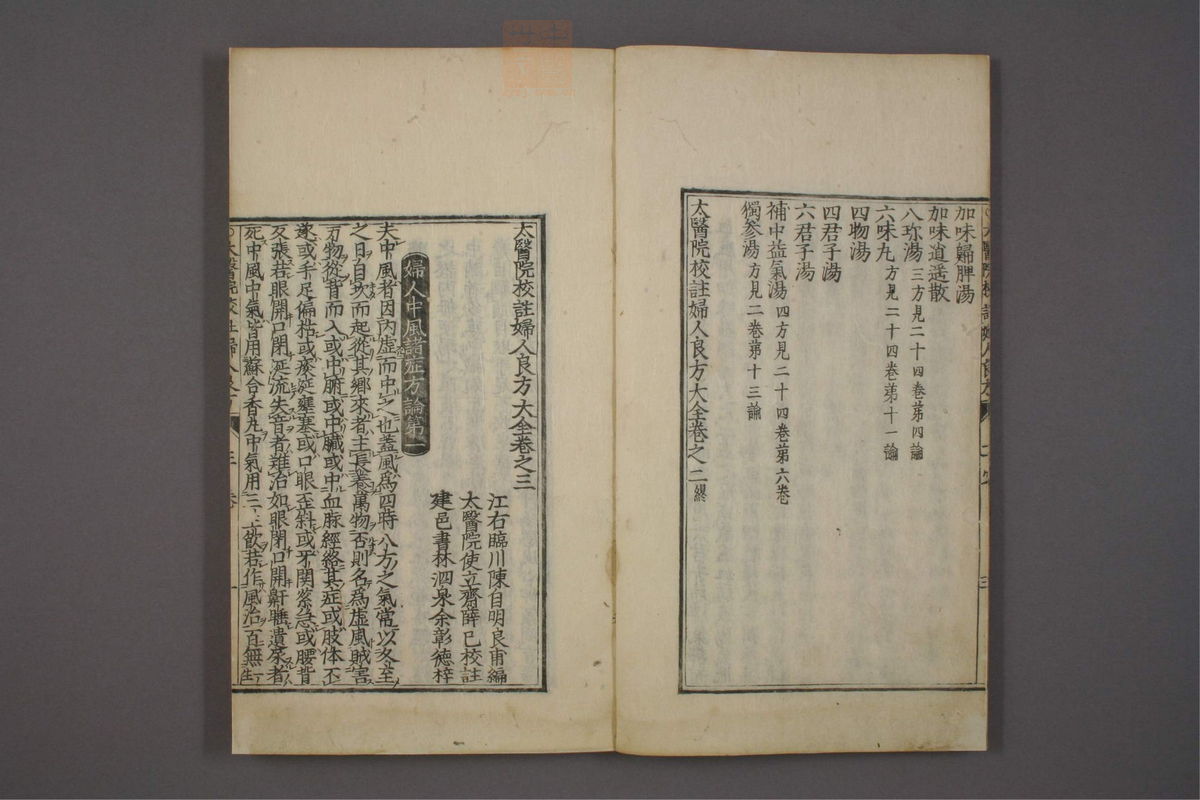 加味歸脾湯
加味逍遥散
八珎湯 三方見二十四卷苐四論
六味丸 方見二十四卷苐十一論
四物湯
四君子湯
六君子湯
補中益氣湯 四方見二十四卷苐六卷
獨參湯 方見二卷苐十三論
太醫院校註婦人良方大全卷之二終
太醫院校註婦人良方大全卷之三
江右臨川陳自明良甫編
太醫院使立齋薛已校註
建邑書林泗泉余彰德梓
婦人中風諸症方論第一
夫中風者因内虛而中之也蓋風爲四時八方之氣常以冬至
之日自坎而起從其鄉來者主長養萬物否則名爲虛風賊害
万物從背而入或中腑或中臟或中血脉經絡其症或肢体不
遂或手足偏枯或痰延壅塞或口眼歪斜或牙関紧急或腰背
反張若眼開口閉涎流失音者难治如眼閉口開鼾睡遺尿者
死中風中氣皆用蘇合香丸中氣用三二飲若作風治百無一生